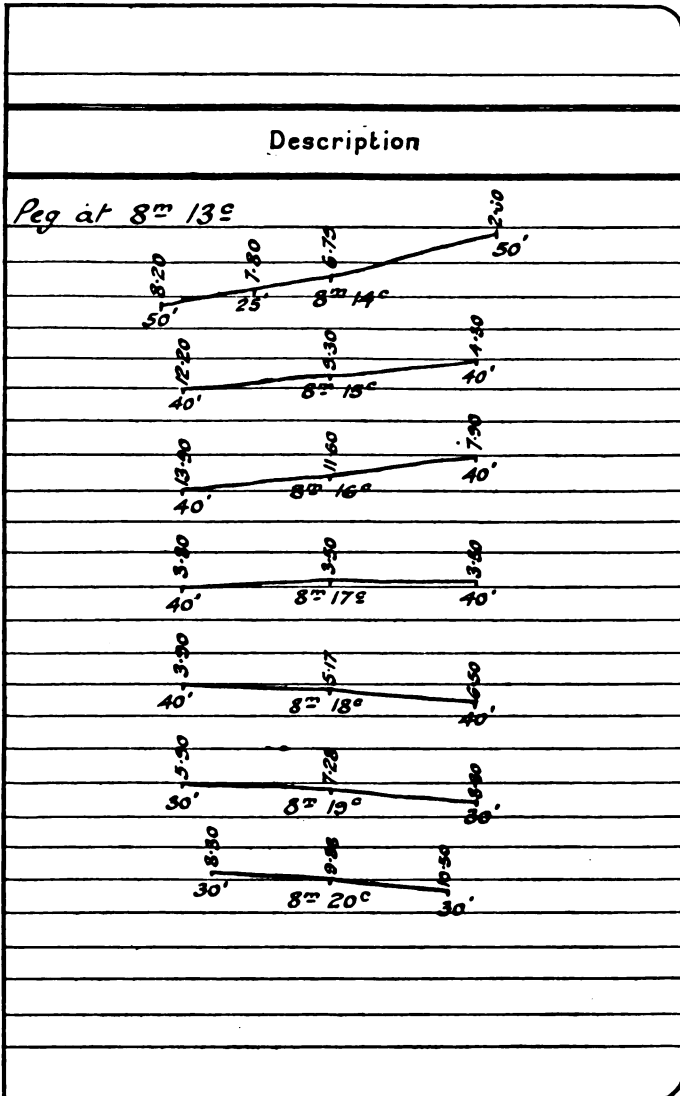 Description
Peg at 8m 13c
8·20 7·80 6·75 2·00
50' 25' 8m 14c 50'
12·20 4·30
40' 8m 15c 40'
13·90 11·60 7·90
40' 8m 16c 40'
3·80 3·50
40' 8m 17c 40'
3·90 5·17 6·50
40' 8m 18c 40'
5·90 7·28
30' 8m 19c 30'
8·30 9·88 10·50
30' 8m 20c 30'